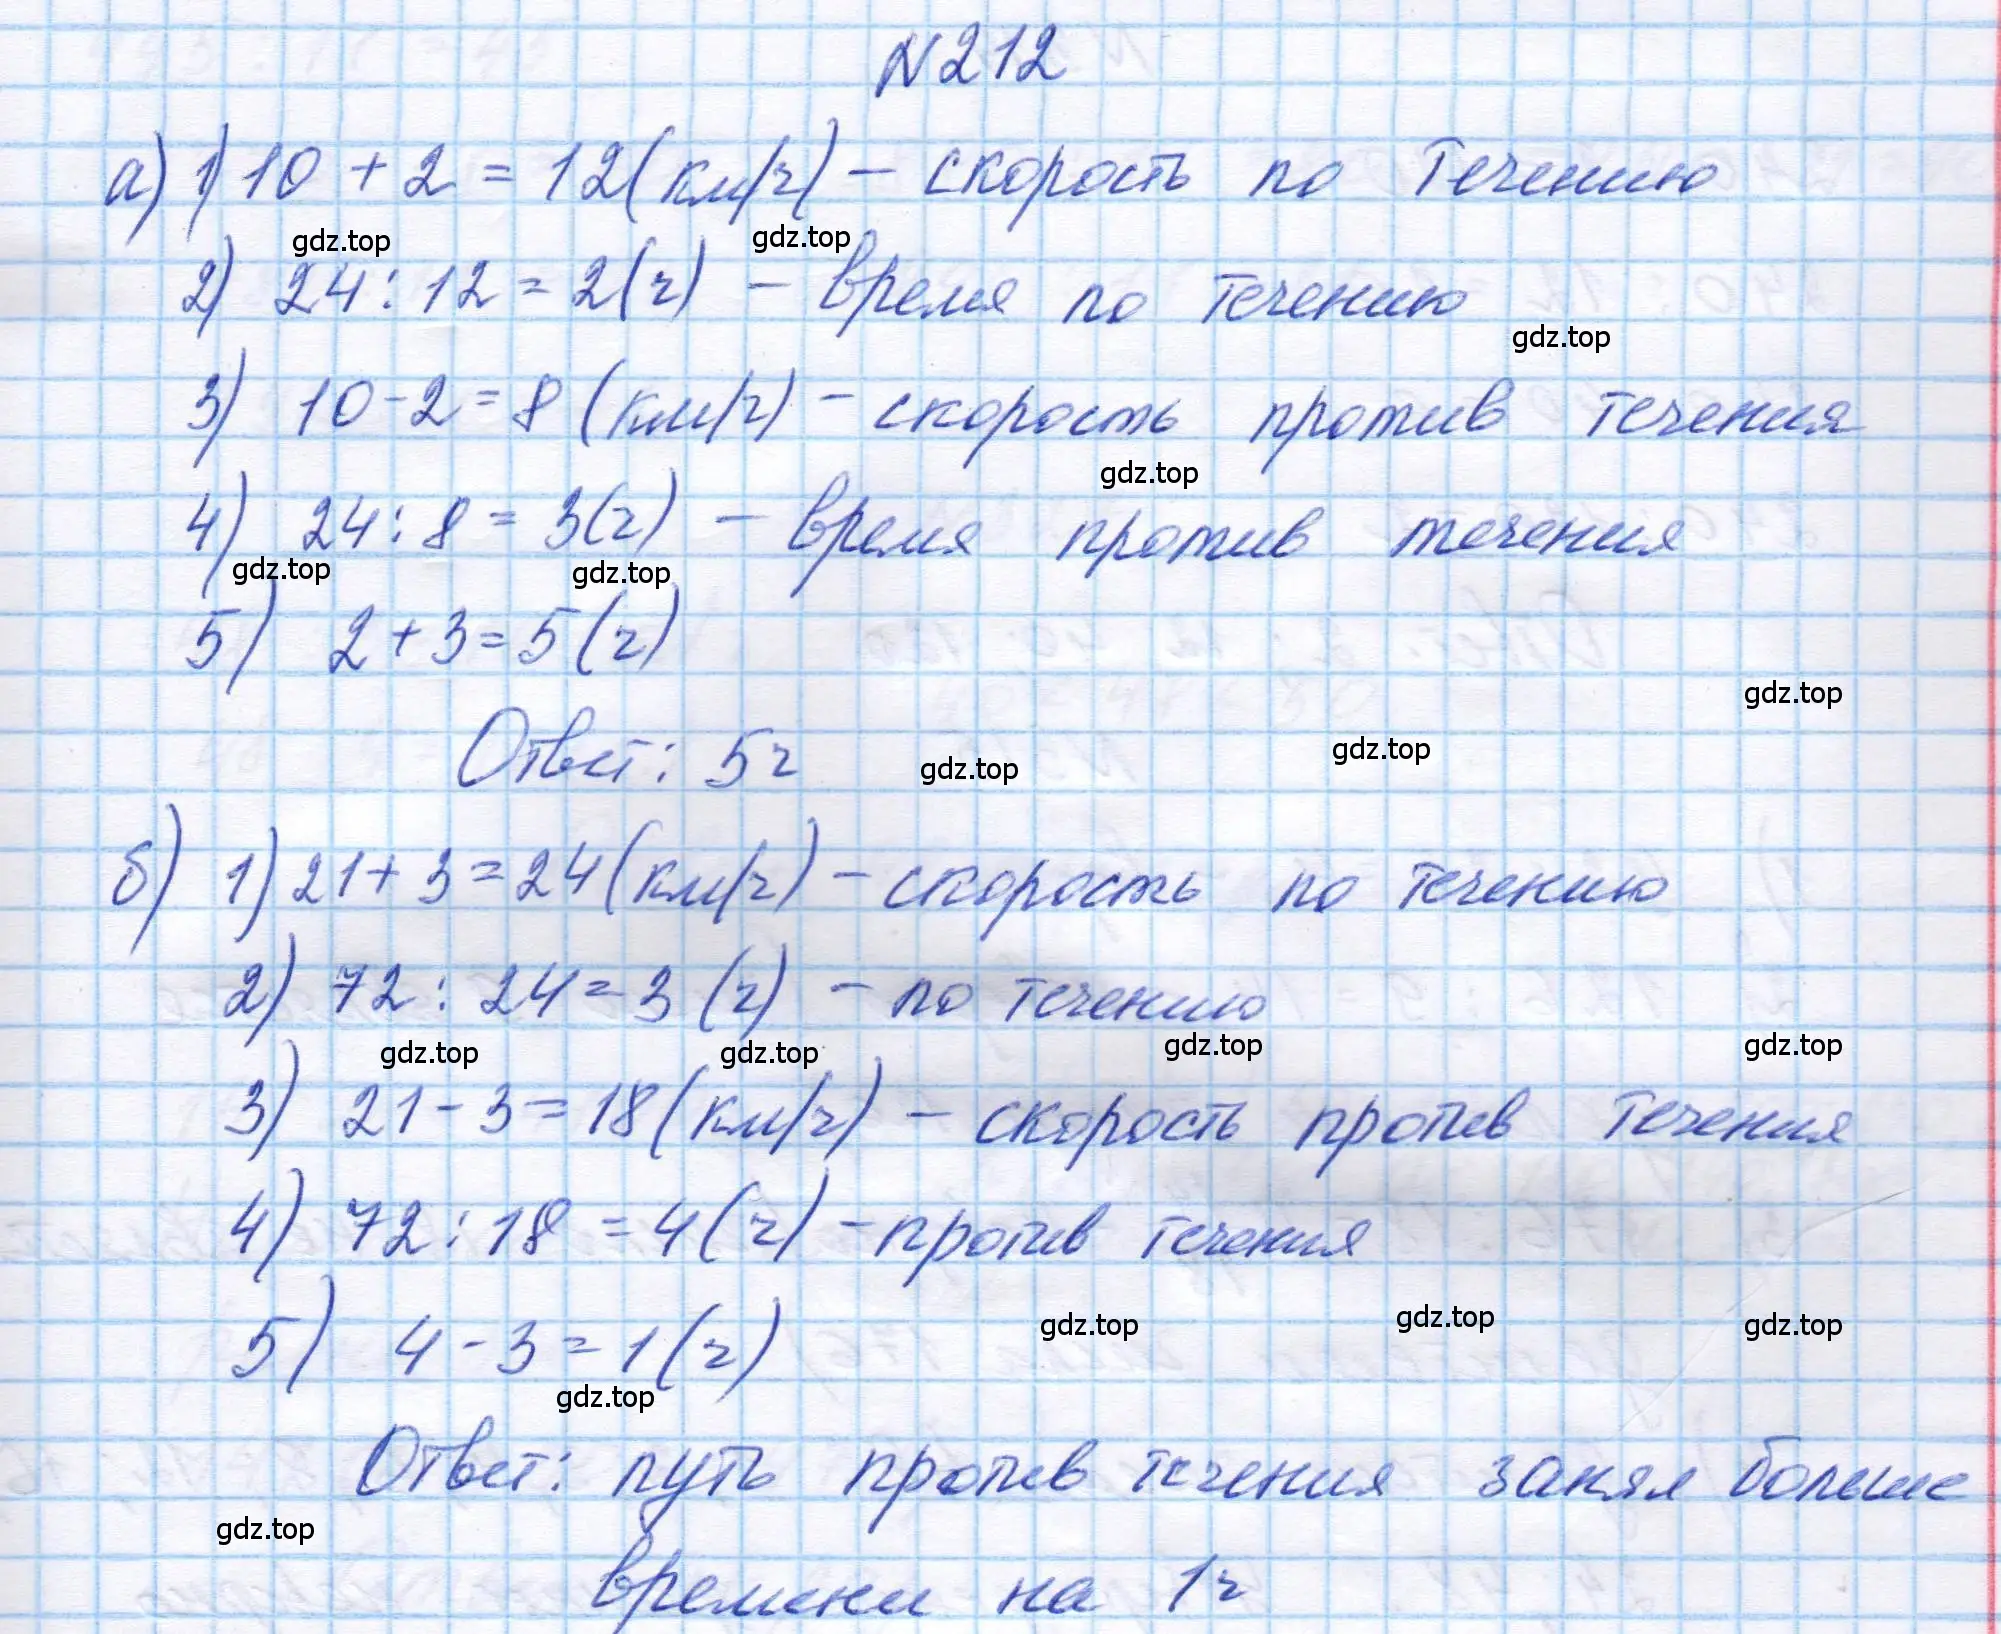 N212
а) 1) 10 + 2 = 12 (км/ч) – скорость по течению
gdz.top gdz.top
2) 24 : 12 = 2 (ч) – время по течению
gdz.top
3) 10 - 2 = 8 (км/ч) – скорость против течения
gdz.top
4) 24 : 8 = 3 (ч) – время против течения
gdz.top gdz.top
5) 2 + 3 = 5 (ч)
gdz.top
Ответ: 5ч
gdz.top gdz.top
б) 1) 21 + 3 = 24 (км/ч) – скорость по течению
2) 72 : 24 = 3 (ч) – по течению
gdz.top gdz.top gdz.top gdz.top
3) 21 - 3 = 18 (км/ч) – скорость против течения
4) 72 : 18 = 4 (ч) – против течения
gdz.top gdz.top gdz.top
5) 4 - 3 = 1 (ч)
gdz.top
Ответ: путь против течения занял больше
gdz.top
времени на 1ч